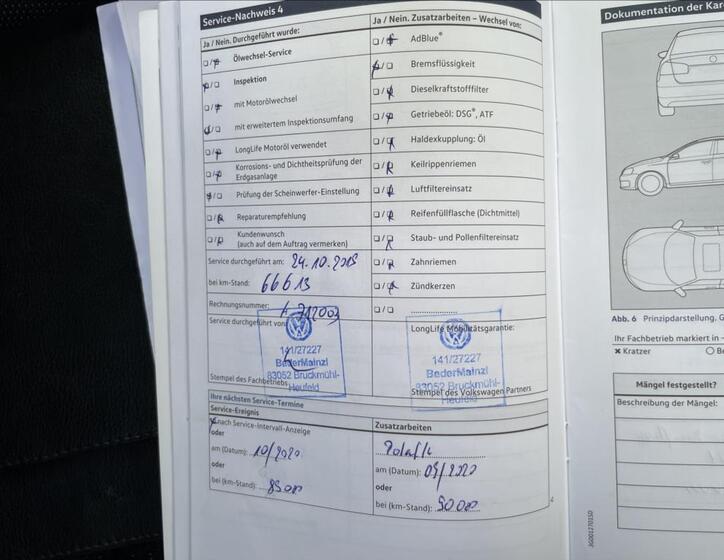 Service-Nachweis 4
Ja / Nein. Durchgeführt wurde:
Ölwechsel-Service
Inspektion
mit Motorölwechsel
mit erweitertem Inspektionsumfang
LongLife Motoröl verwendet
Korrosions- und Dichtheitsprüfung der
Erdgasanlage
Prüfung der Scheinwerfer-Einstellung
Reparaturempfehlung
Kundenwunsch
(auch auf dem Auftrag vermerken)
Service durchgeführt am: 24.10.2018
bei km-Stand: 66613
Rechnungsnummer:
Service durchgeführt von
141/27227
BederMainzl
83052 Bruckmühl-
Heufeld
Stempel des Fachbetriebs
Ja / Nein. Zusatzarbeiten – Wechsel von:
AdBlue®
Bremsflüssigkeit
Dieselkraftstofffilter
Getriebeöl: DSG®, ATF
Haldexkupplung: Öl
Keilrippenriemen
Luftfiltereinsatz
Reifenfüllflasche (Dichtmittel)
Staub- und Pollenfiltereinsatz
Zahnriemen
Zündkerzen
LongLife Mobilitätsgarantie:
141/27227
BederMainzl
83052 Bruckmühl-
Heufeld
Stempel des Volkswagen Partners
Ihre nächsten Service-Termine
Service-Ereignis
nach Service-Intervall-Anzeige
oder
am (Datum): 10/2020
oder
bei (km-Stand):
Zusatzarbeiten
am (Datum): 09/2020
oder
bei (km-Stand):
Dokumentation der Kar
Abb. 6 Prinzipdarstellung. G
Ihr Fachbetrieb markiert in –
✖ Kratzer
Mängel festgestellt?
Beschreibung der Mängel: